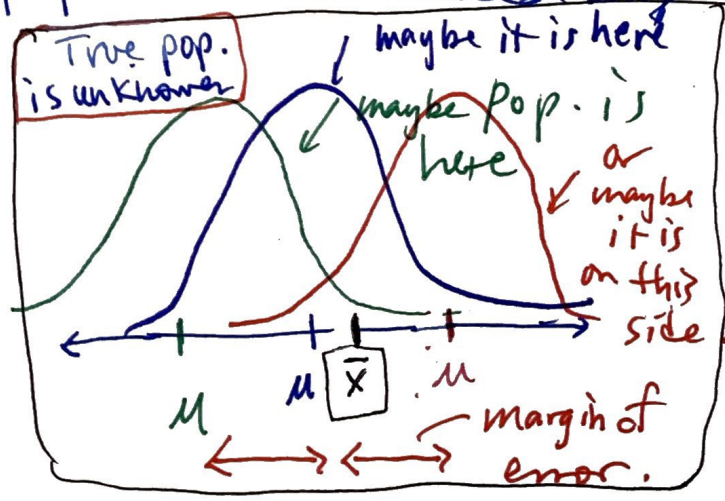 True pop.
is unknower
maybe it is here
maybe pop. is
here
or
maybe
it is
on this
side.
μ
μ
x̄
μ
margin of
error.